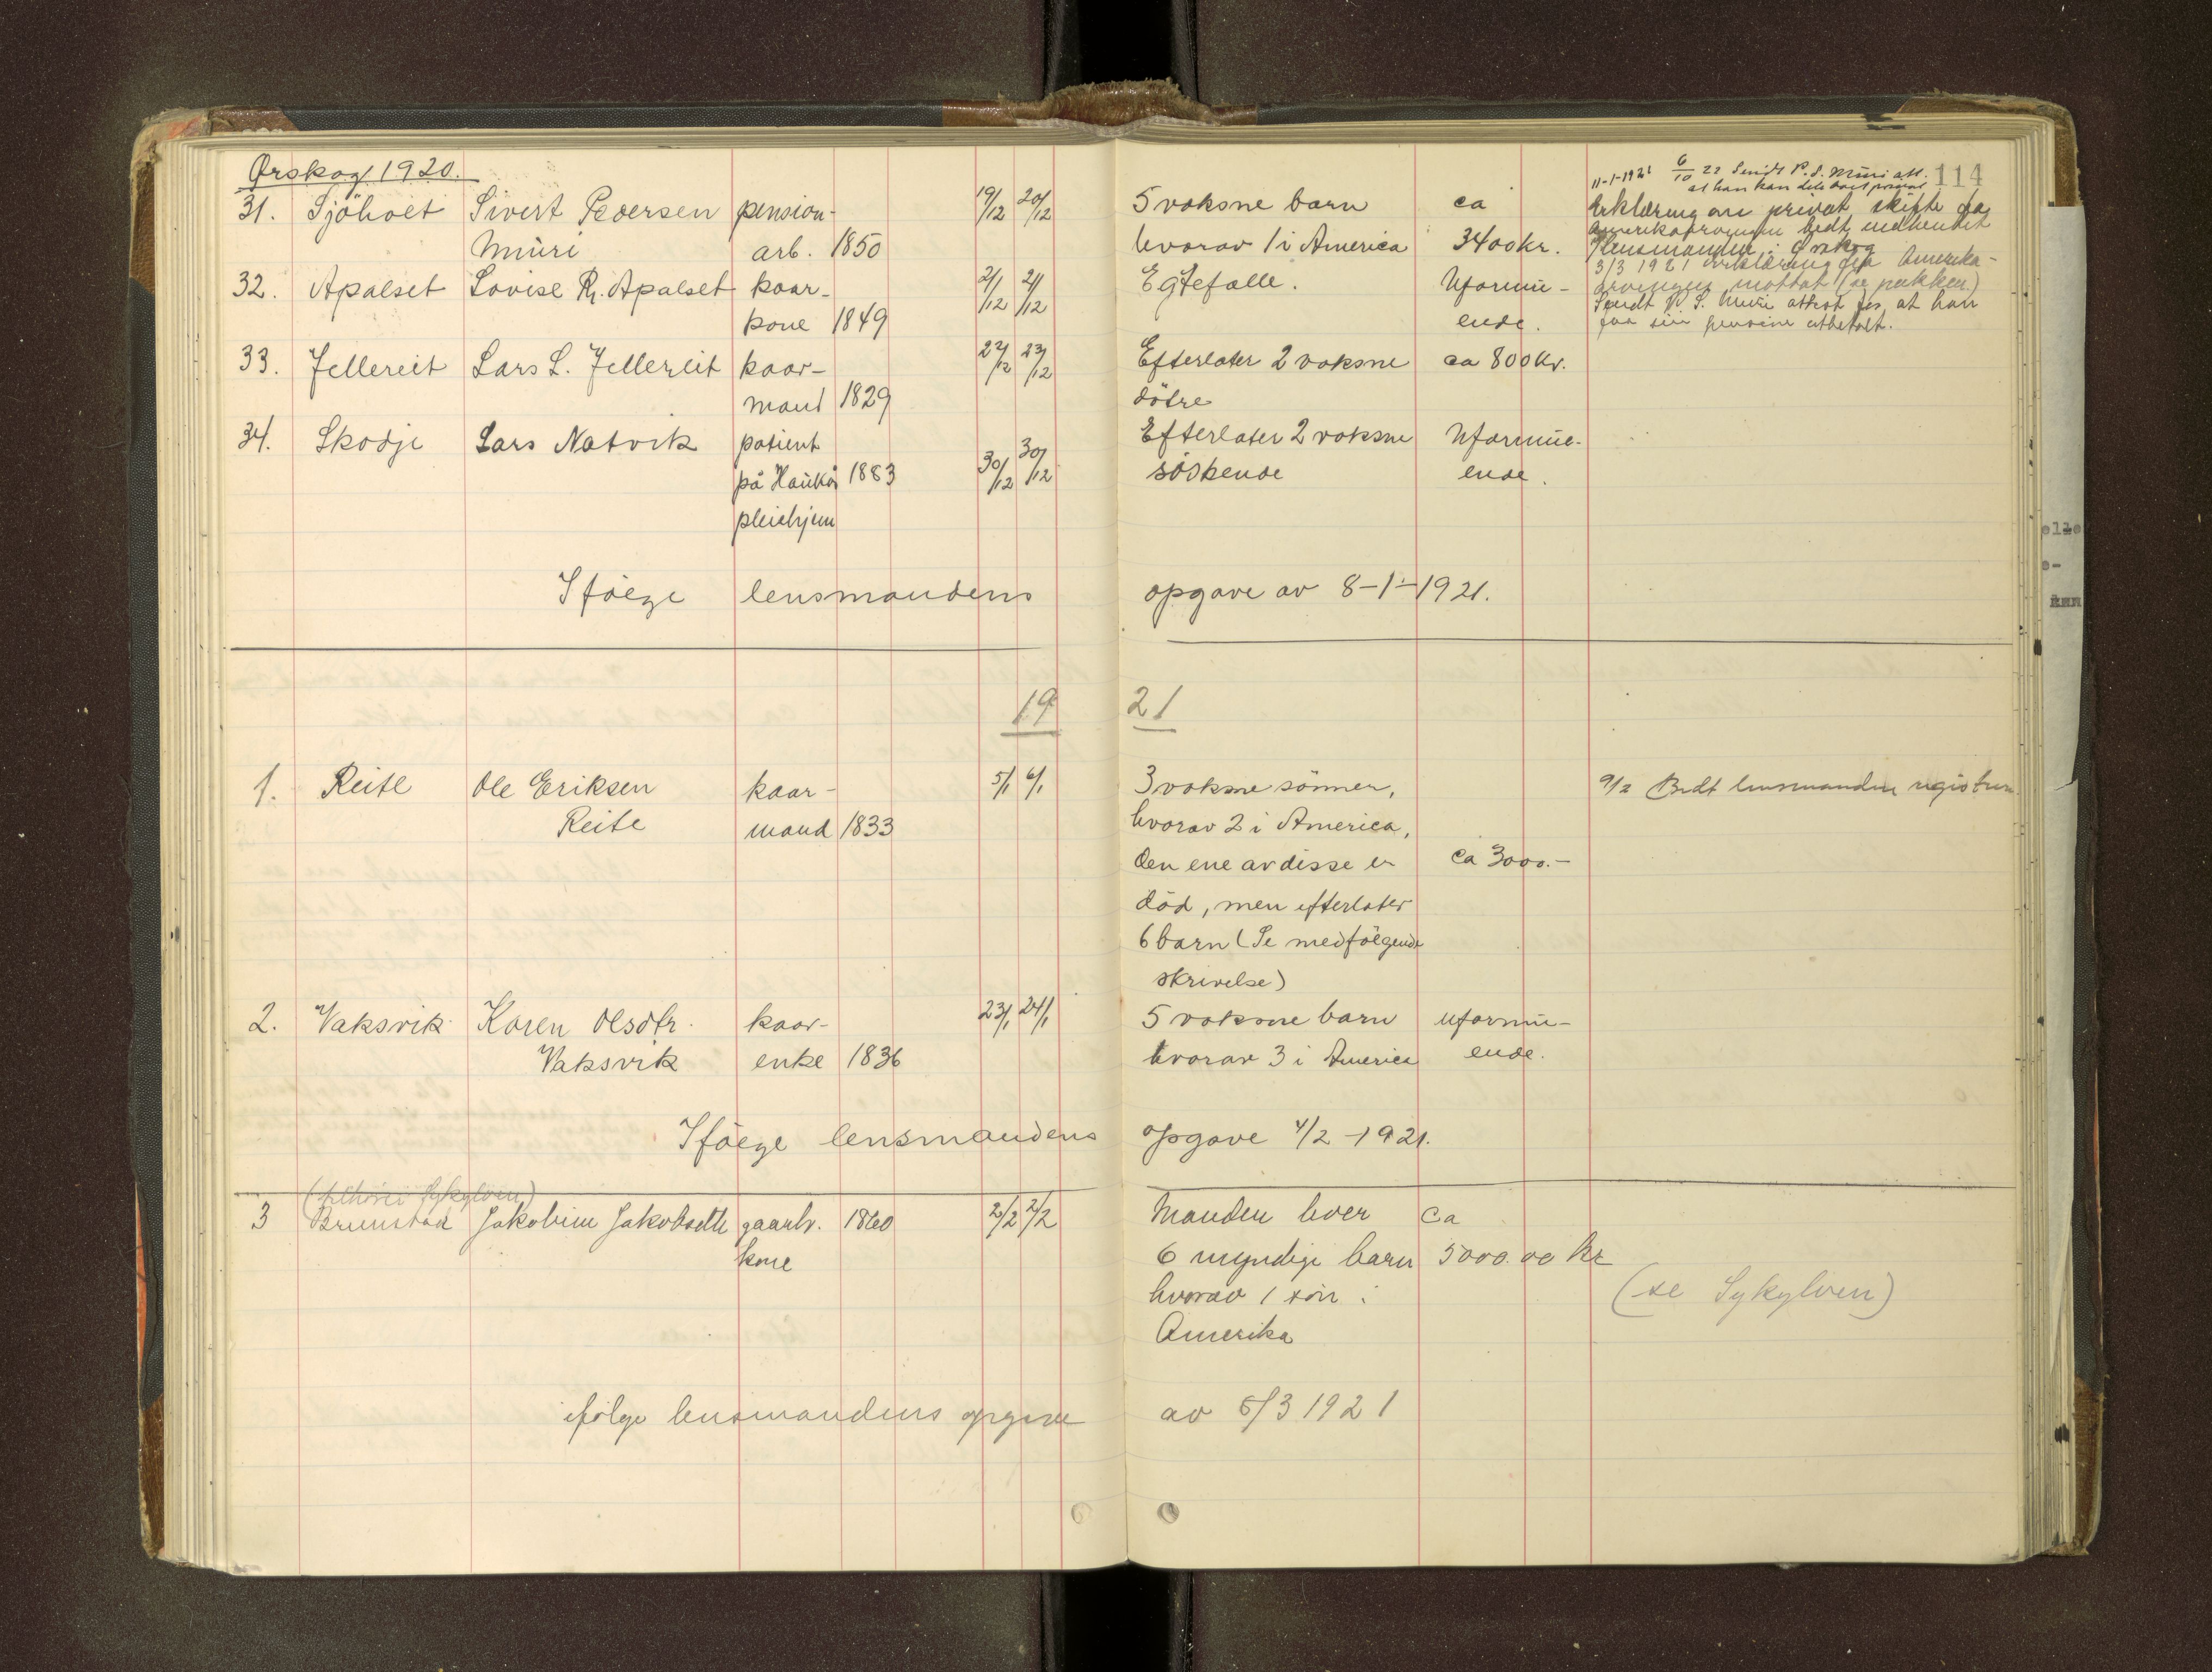 Ørskog 1920.
114
31. Sjöholt Sivert Pedersen pension- 19/12 20/12 5 voksne barn ca
Muri arb. 1850 hvorav 1 i America 3400 kr.
11-1-1921 6/10 22 Sendt P. S. Muri att.
at han kan dele boet privat
Erklæring om privat skifte fra
bedt indhendet
Lensmanden i Ørskog
3/3 1921 Erklæring fra Amerika-
arvingen mottat (se pakken)
Sendt P. S. Muri attest for at han
faa sin pension utbetalt.
32. Apalset Lovise R. Apalset kaar- 21/12 21/12 Egtefælle. Uformu-
kone 1849 ende.
33. Fellereit Lars L. Fellereit kaar- 22/12 23/12 Efterlater 2 voksne ca 800 kr.
mand 1829 dötre
34. Skodje Lars Natvik patient 30/12 30/12 Efterlater 2 voksne Uformu-
på 1883 söskende ende.
pleiehjem
Ifölge lensmandens opgave av 8-1-1921.
19 21
1. Reite Ole Eriksen kaar- 5/1 6/1 3 voksne sönner, 9/2 Bedt lensmanden registrere
Reite mand 1833 hvorav 2 i America,
den ene av disse er ca 3000.-
död, men efterlater
6 barn (Se medfölgende
skrivelse)
2. Vaksvik Karen Olsdtr. kaar- 23/1 24/1 5 voksne barn uformu-
Vaksvik enke 1836 hvorav 3 i America ende.
Ifölge lensmandens opgave 4/2-1921.
(tilhörer Sykylven)
3 Brunstad Jakobine Jakobsdtr gaardbr. 1860 2/2 2/2 Manden lever ca
kone 6 myndige barn 5000.00 kr
hvorav 1 sön i (se Sykylven)
Amerika
ifölge lensmandens opgave av 5/3 1921